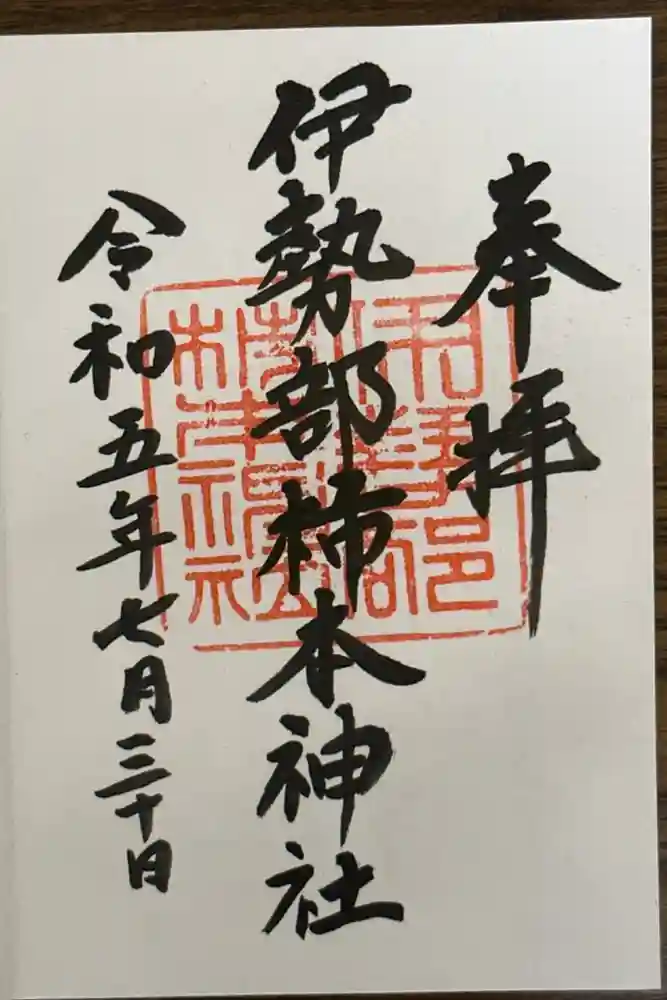 奉拝
伊勢部柿本神社
令和五年七月三十日